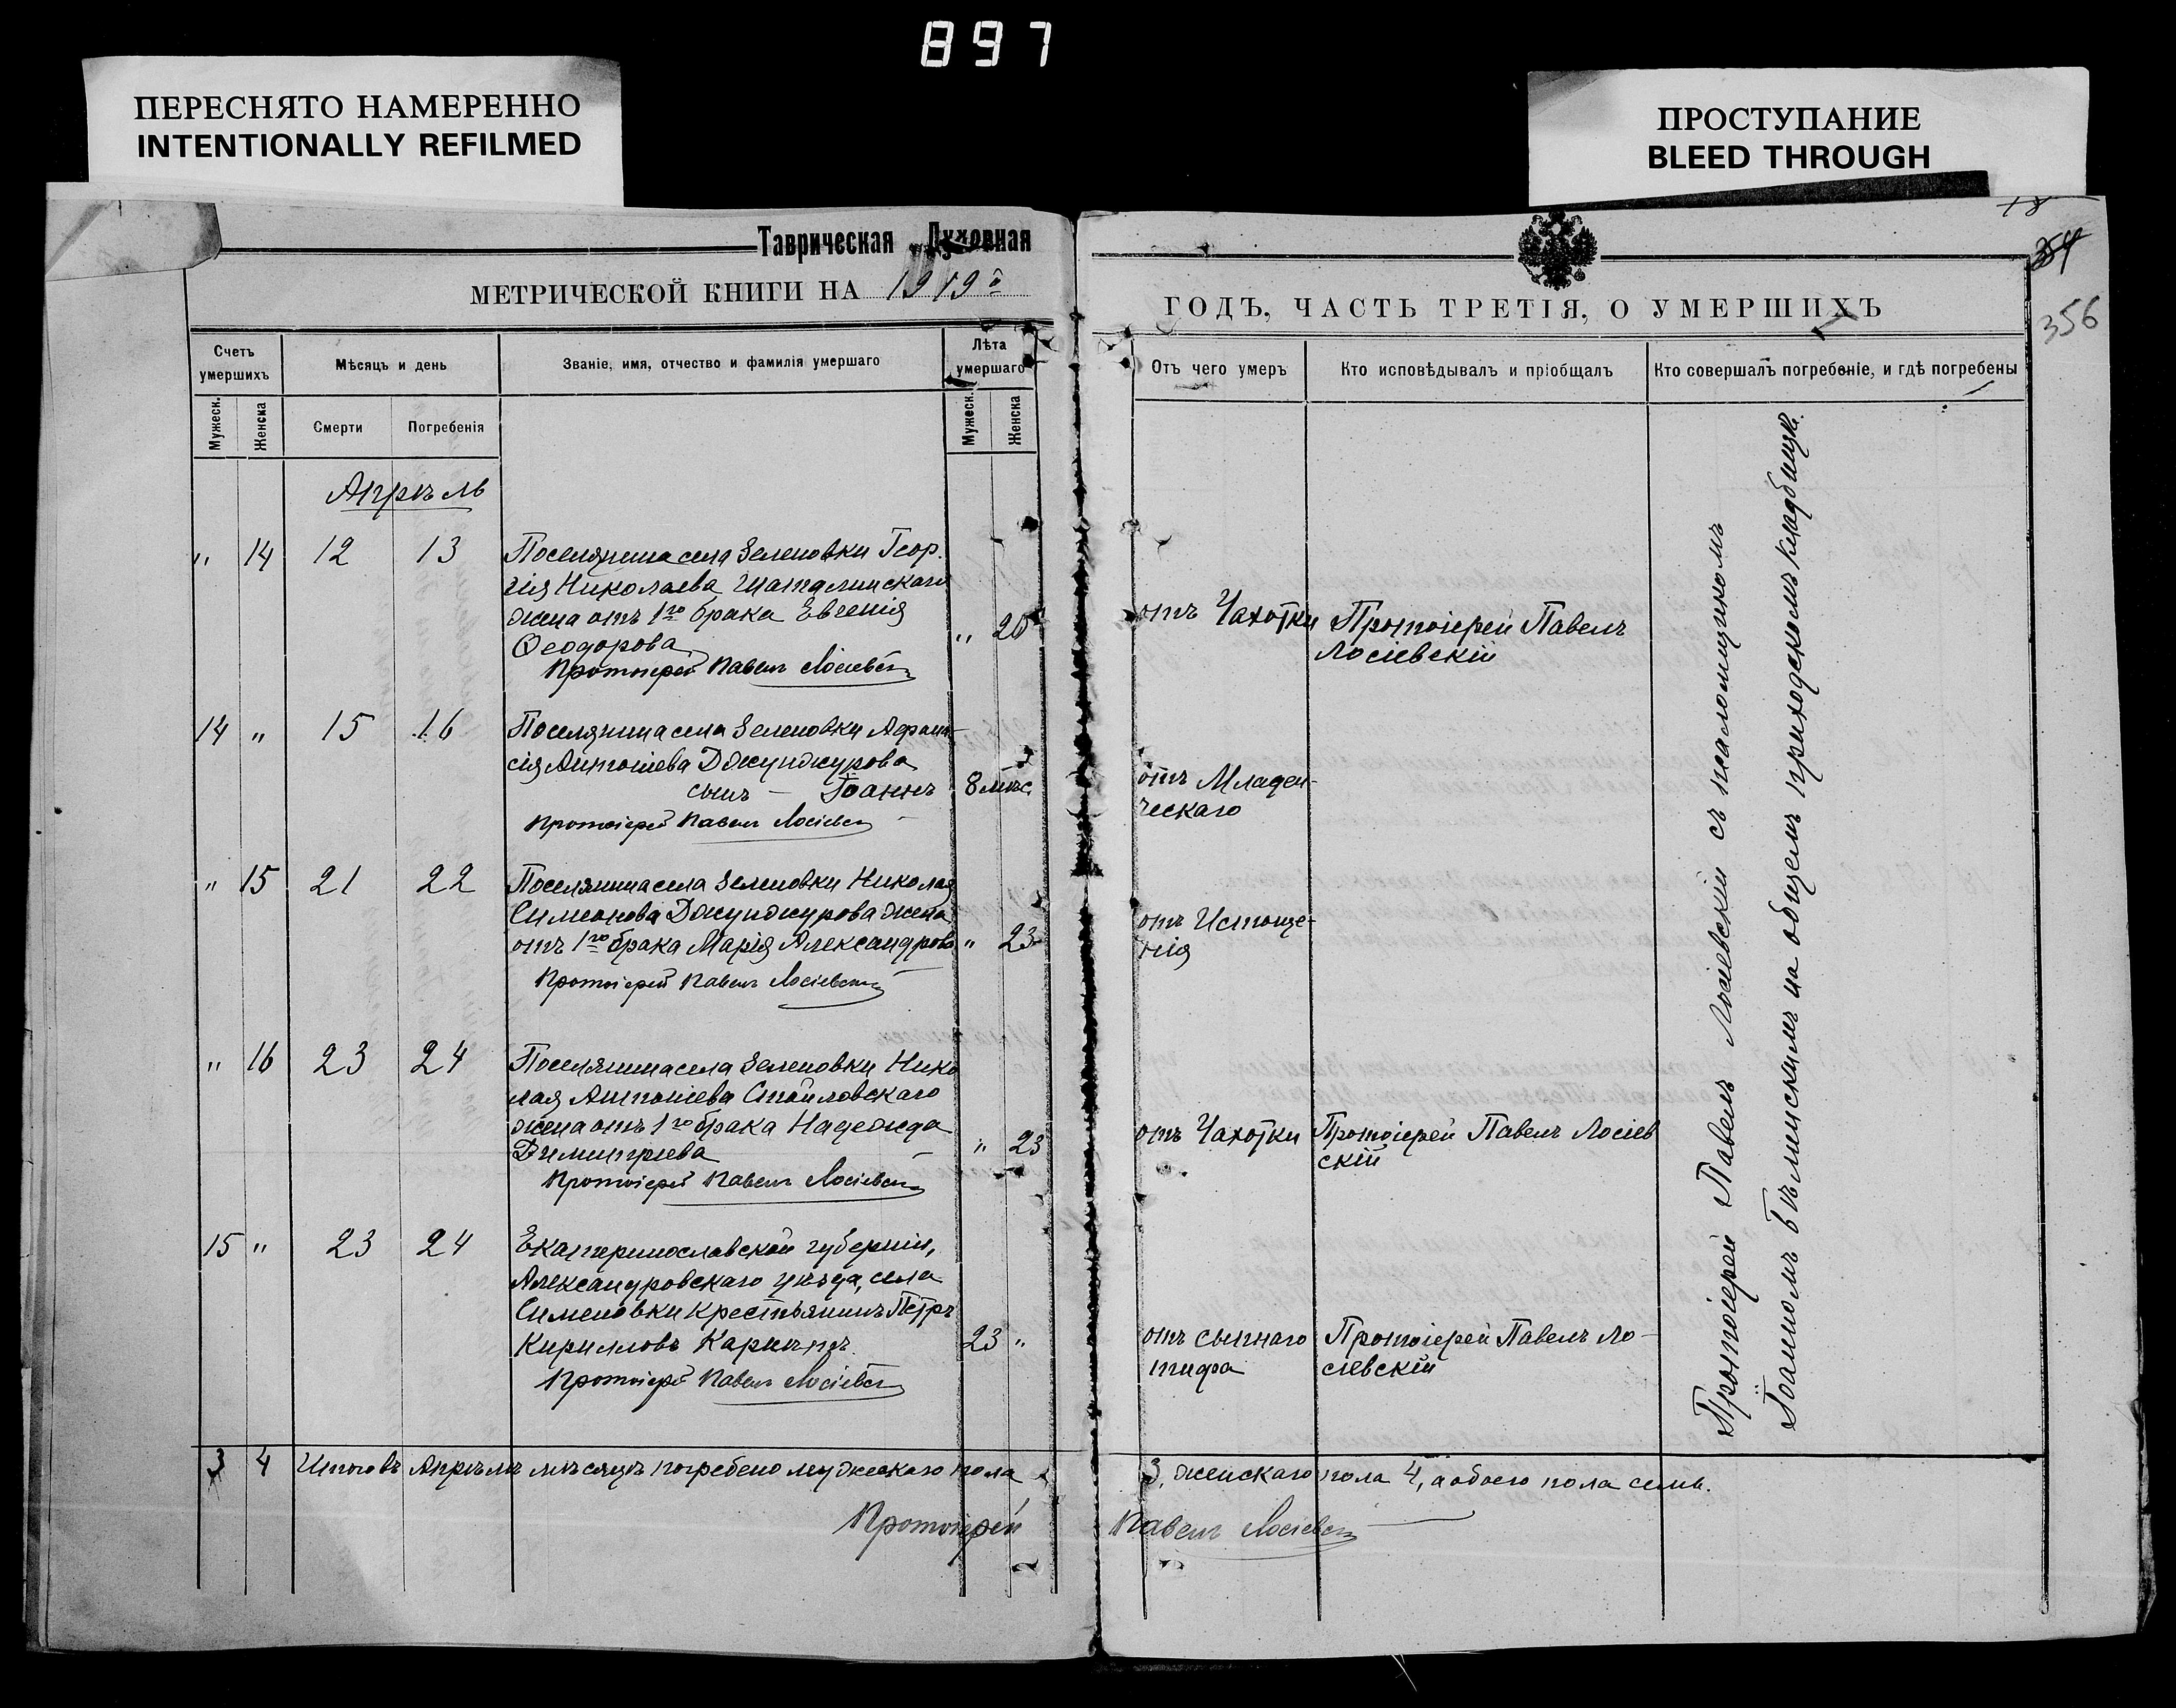 897
ПЕРЕСНЯТО НАМЕРЕННО
INTENTIONALLY REFILMED
ПРОСТУПАНИЕ
BLEED THROUGH
Таврическая Духовная
МЕТРИЧЕСКОЙ КНИГИ НА 1919
Счетъ умершихъ
Мѣсяцъ и день
Званіе, имя, отчество и фамилія умершаго
Лѣта умершаго
Мужеск.
Женска
Смерти
Погребенія
Мужеск.
Женска
Апрѣль
" 14 12 13 Поселянина села Зеленовки Геор-
гія Николаева Шаталинскаго
жена отъ 1го брака Евгенія
Ѳеодорова " 20
Протоіерей Павелъ Лосіевскій
14 " 15 16 Поселянина села Зеленовки Афана-
сія Антоніева Джунджурова
сынъ — Іоаннъ 8 мѣс.
Протоіерей Павелъ Лосіевскій
" 15 21 22 Поселянина села Зеленовки Николая
Симеонова Джунджурова жена
отъ 1го брака Марія Александрова " 23
Протоіерей Павелъ Лосіевскій
" 16 23 24 Поселянина села Зеленовки Нико
лая Антоніева Стойловскаго
жена отъ 1го брака Надежда
Димитріева " 23
Протоіерей Павелъ Лосіевскій
15 " 23 24 Екатеринославской губерніи,
Александровскаго уѣзда, села
Сименовки крестьянинъ Петръ
Кирилловъ 23 "
Протоіерей Павелъ Лосіевскій
3 4 Итого въ Апрѣлѣ мѣсяцѣ погребено мужескаго пола
Протоіерей
18
354
356
ГОДЪ, ЧАСТЬ ТРЕТІЯ, О УМЕРШИХЪ
Отъ чего умеръ
Кто исповѣдывалъ и пріобщалъ
Кто совершалъ погребеніе, и гдѣ погребены
отъ Чахотки Протоіерей Павелъ
Лосіевскій
отъ Младен-
ческаго
отъ Истоще-
нія
отъ Чахотки Протоіерей Павелъ Лосіев
скій
отъ сыпнаго Протоіерей Павелъ Ло-
тифа сіевскій
Протоіерей Павелъ Лосіевскій съ псаломщикомъ
Іоанномъ Бѣлинскимъ на общемъ приходскомъ кладбищѣ.
3, женскаго пола 4, а обоего пола семь.
Павелъ Лосіевскій